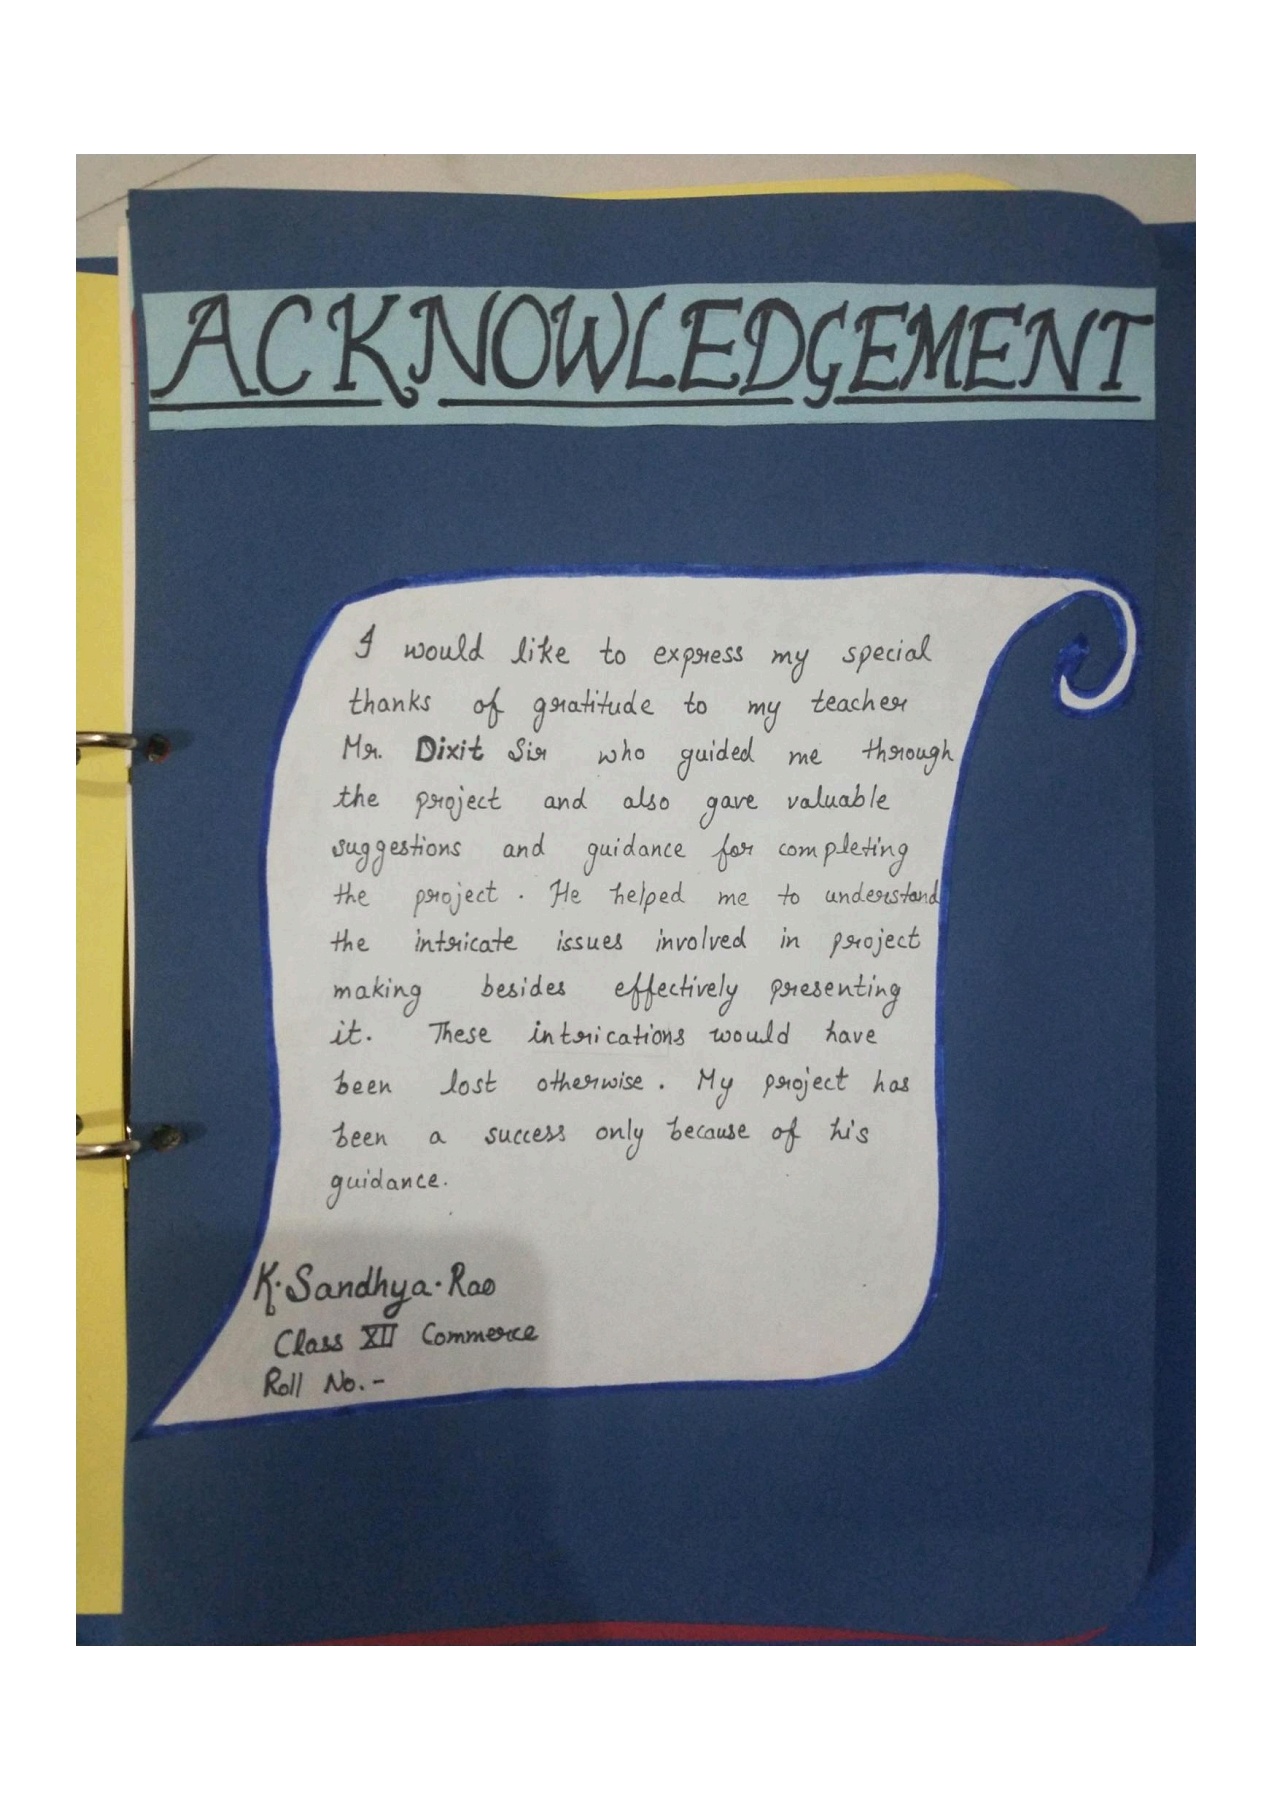 ACKNOWLEDGEMENT
I would like to express my special
thanks of gratitude to my teacher
Mr. Dixit Sir who guided me through
the project and also gave valuable
suggestions and guidance for completing
the project. He helped me to understand
the intricate issues involved in project
making besides effectively presenting
it. These intrications would have
been lost otherwise. My project has
been a success only because of his
guidance.
K.Sandhya.Rao
Class XII Commerce
Roll No.-